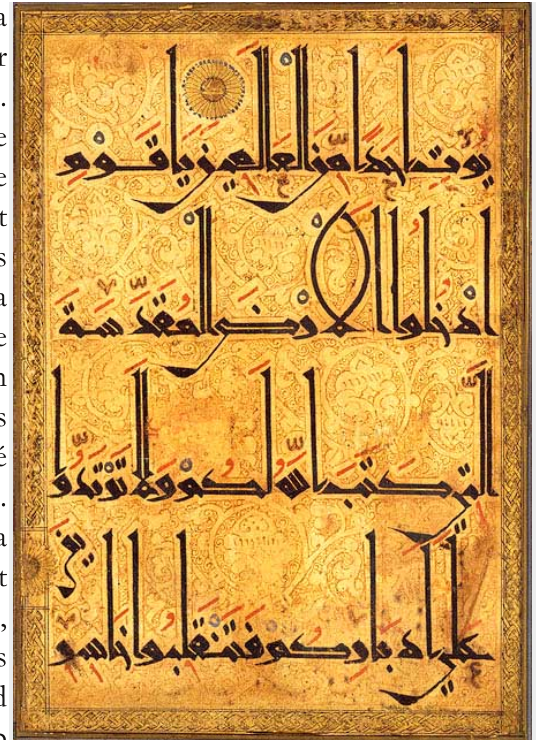 يوت احدا من العالمين يا قوم
ادخلوا الارض المقدسة
التي كتب الله لكم ولا ترتدوا
على ادباركم فتنقلبوا خاسرين